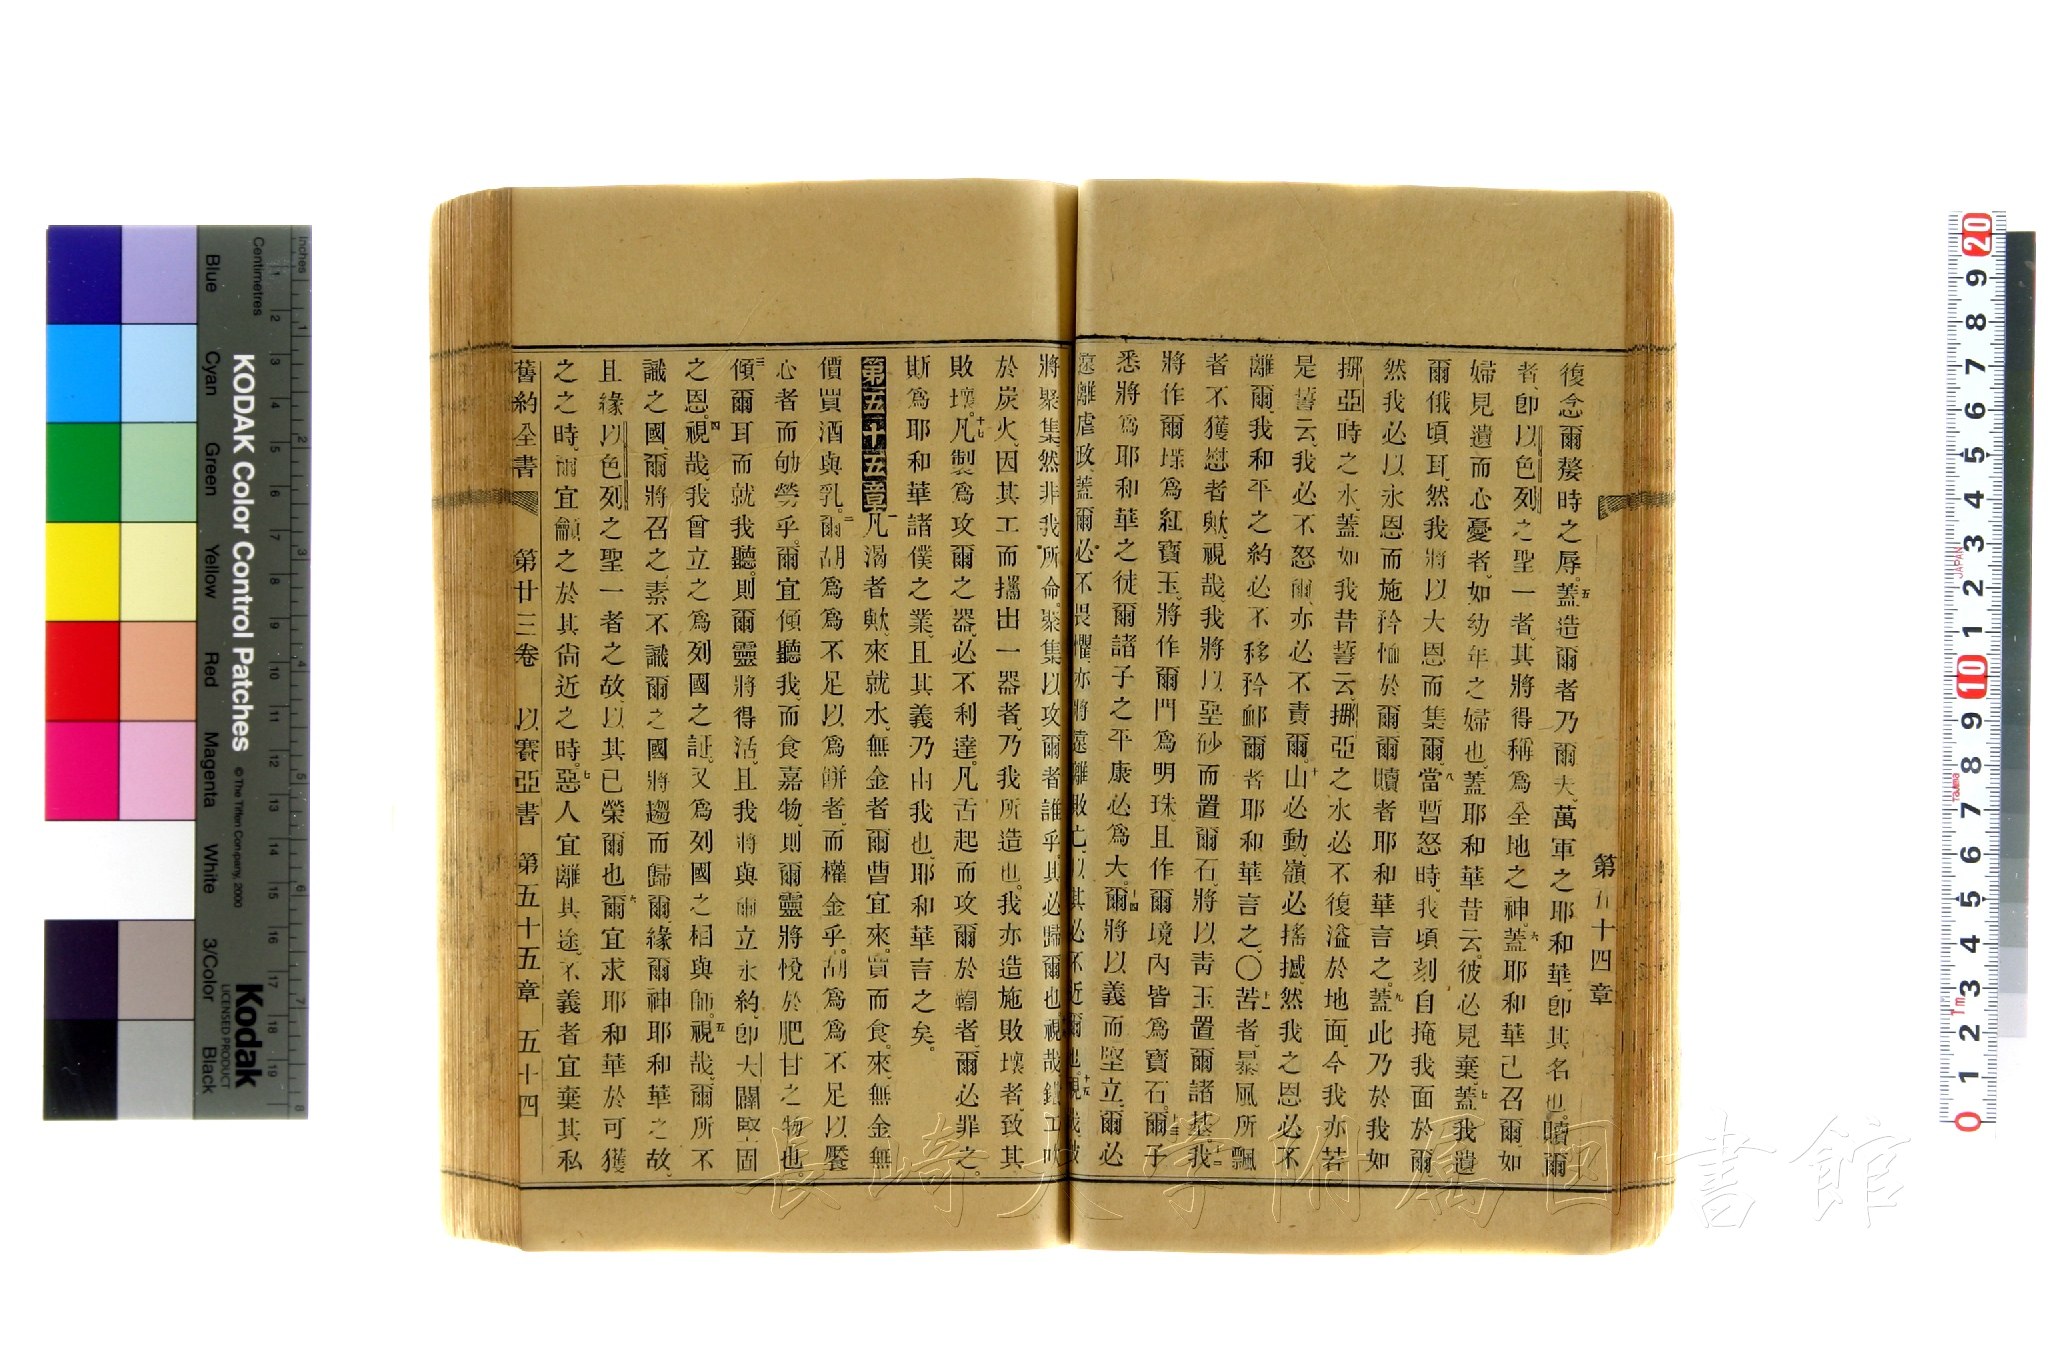 第五十四章
復念爾嫠時之辱蓋造爾者乃爾夫萬軍之耶和華卽其名也贖爾
者卽以色列之聖一者其將得稱爲全地之神蓋耶和華已召爾如
婦見遺而心憂者如幼年之婦也蓋耶和華昔云彼必見棄蓋我遺
爾俄頃耳然我將以大恩而集爾當暫怒時我頃刻自掩我面於爾
然我必以永恩而施矜恤於爾爾贖者耶和華言之蓋此乃於我如
挪亞時之水蓋如我昔誓云挪亞之水必不復溢於地面今我亦若
是誓云我必不怒爾亦必不責爾山必動嶺必搖撼然我之恩必不
離爾我和平之約必不移矜卹爾者耶和華言之〇苦者暴風所飄
者不獲慰者歟視哉我將以堊砂而置爾石將以靑玉置爾諸基我
將作爾堞爲紅寶玉將作爾門爲明珠且作爾境內皆爲寶石爾子
悉將爲耶和華之徒爾諸子之平康必爲大爾將以義而堅立爾必
遠離虐政蓋爾必不畏懼亦將遠離敗亡以其必不近爾也視哉彼
將聚集然非我所命聚集以攻爾者誰乎其必歸爾也視哉鐵工吹
於炭火因其工而攜出一器者乃我所造也我亦造施敗壞者致其
敗壞凡製爲攻爾之器必不利達凡舌起而攻爾於鞫者爾必罪之
斯爲耶和華諸僕之業且其義乃由我也耶和華言之矣
第五十五章凡渴者歟來就水無金者爾曹宜來買而食來無金無
價買酒與乳爾胡爲爲不足以爲餅者而權金乎胡爲爲不足以饜
心者而劬勞乎爾宜傾聽我而食嘉物則爾靈將悅於肥甘之物也
傾爾耳而就我聽則爾靈將得活且我將與爾立永約卽大闢堅固
之恩視哉我曾立之爲列國之証又爲列國之相與師視哉爾所不
識之國爾將召之素不識爾之國將趨而歸爾緣爾神耶和華之故
且緣以色列之聖一者之故以其已榮爾也爾宜求耶和華於可獲
之之時爾宜籲之於其尙近之時惡人宜離其途不義者宜棄其私
舊約全書 第廿三卷 以賽亞書 第五十五章 五十四
KODAK Color Control Patches
© The Tiffen Company, 2000
Kodak
LICENSED PRODUCT
Inches
Centimetres
Blue Cyan Green Yellow Red Magenta White 3/Color Black
長崎大学附属図書館
JAPAN